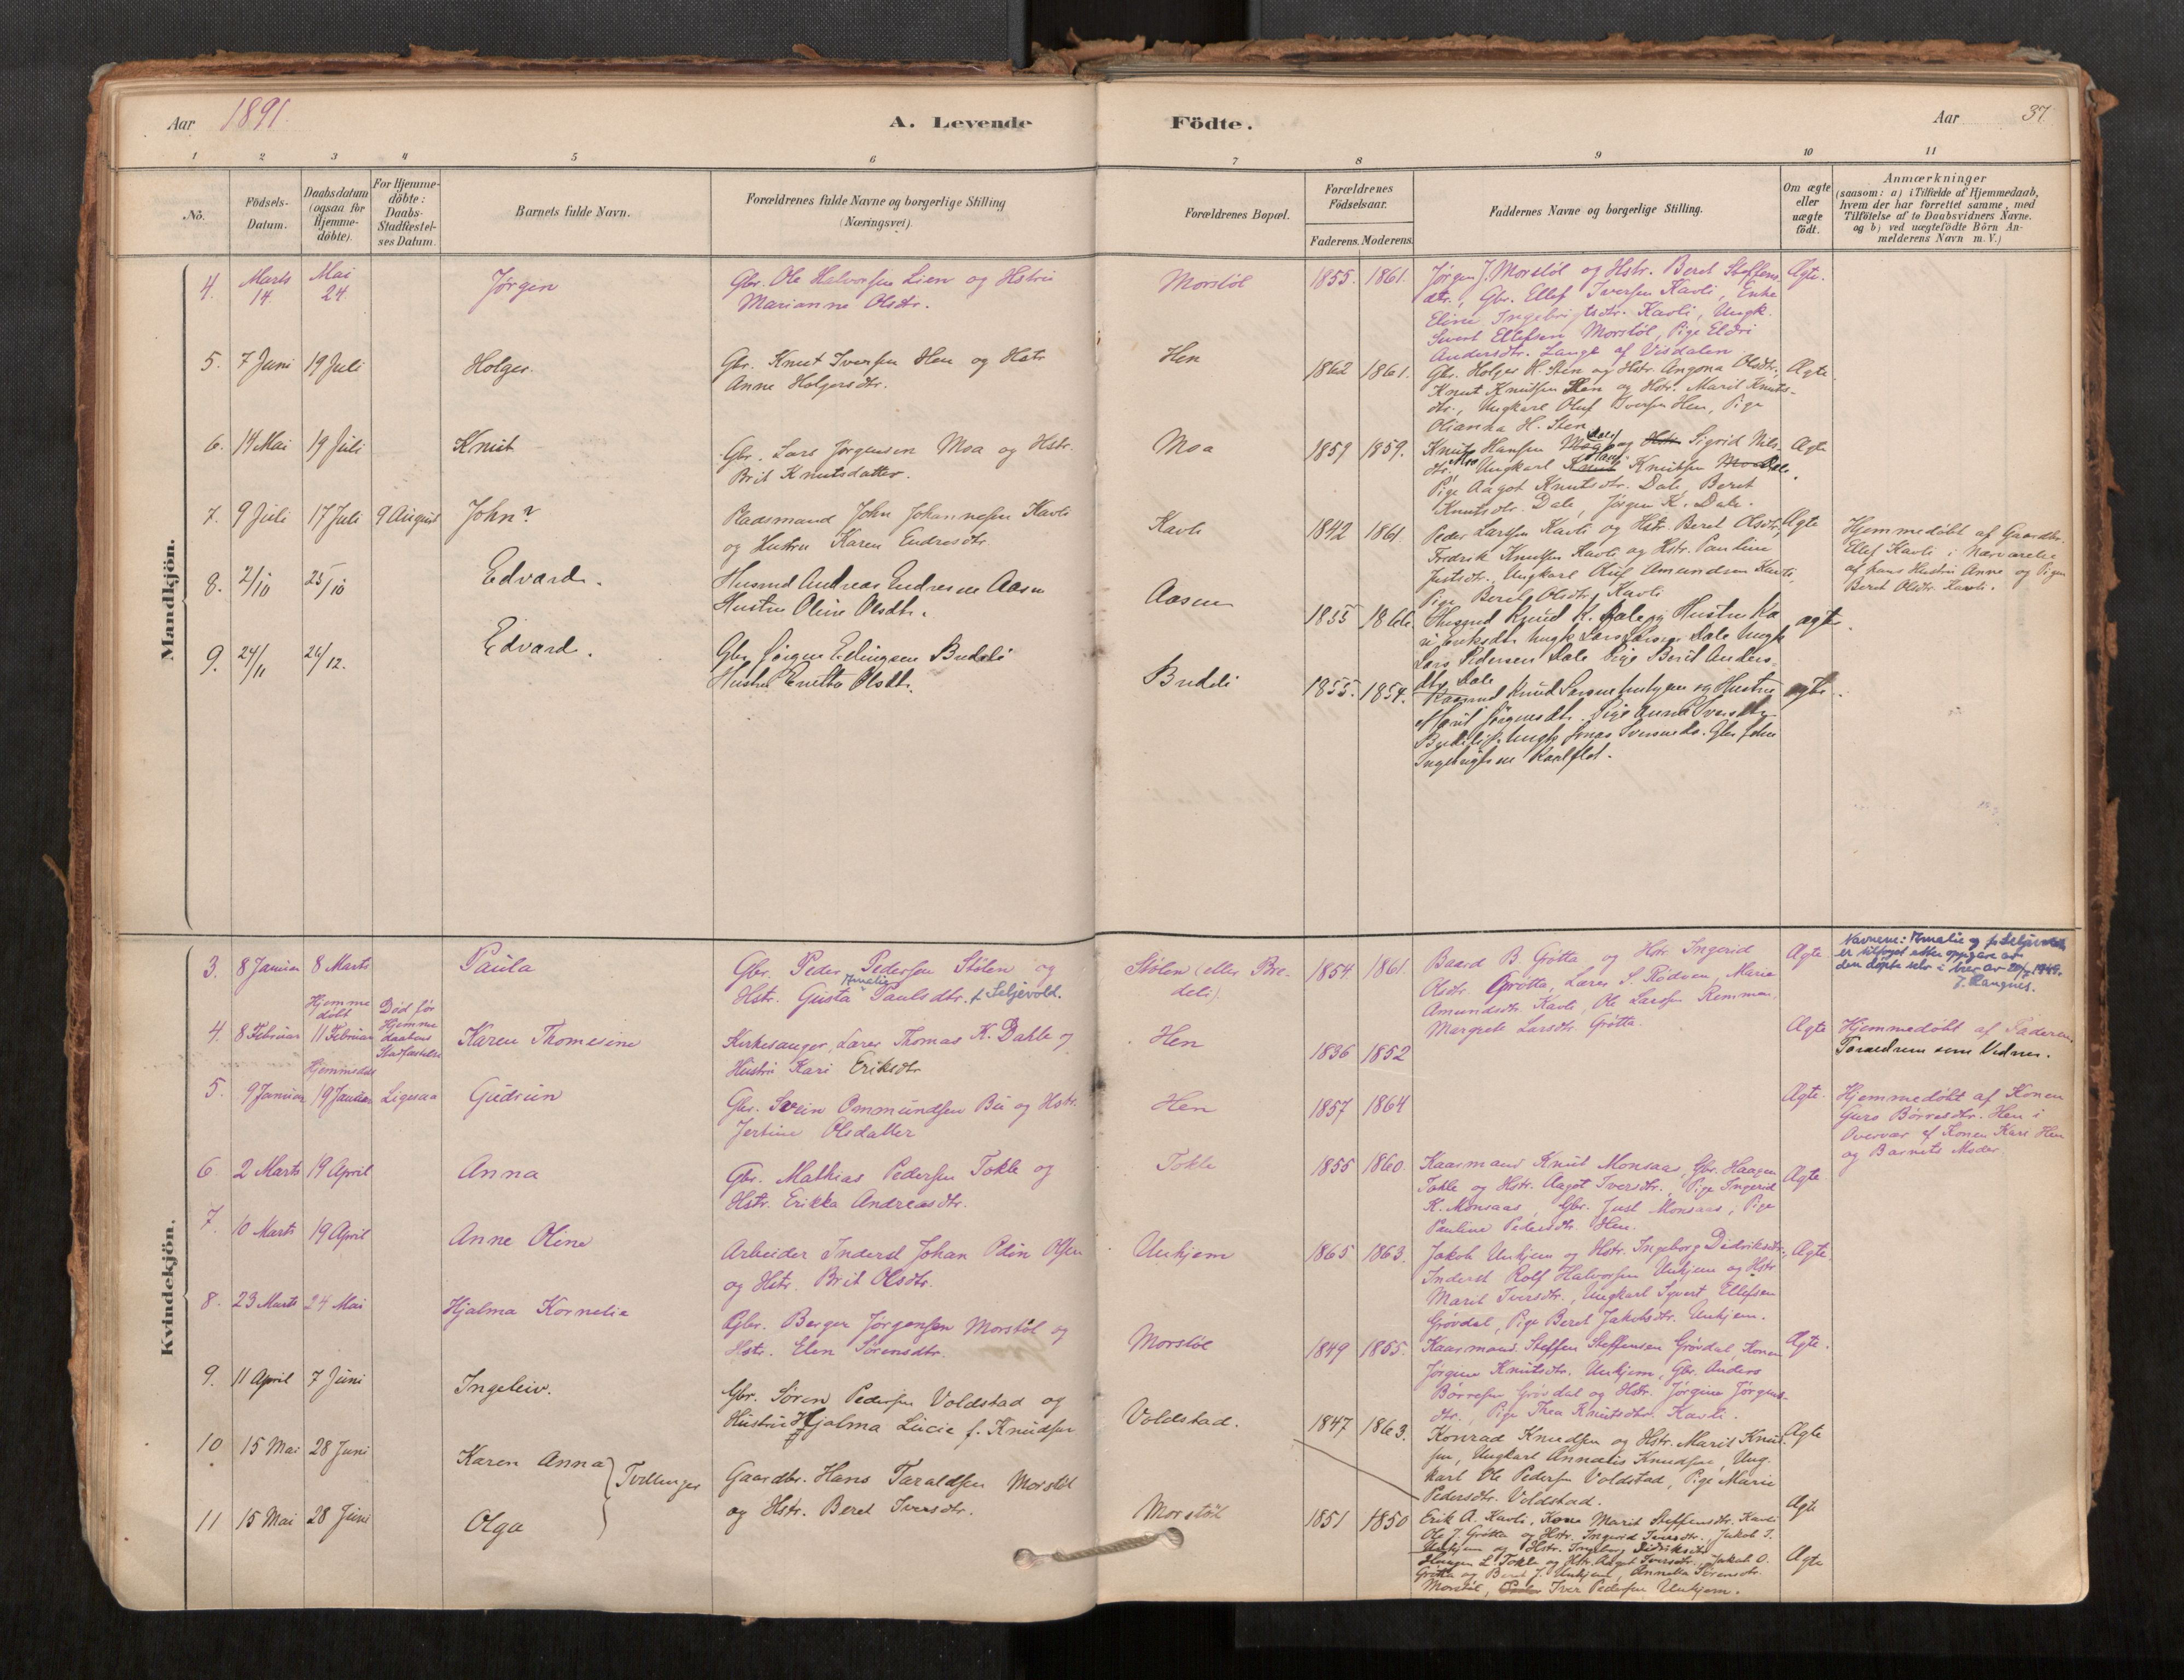 Aar 1891.
A. Levende Födte.
Aar 37
1 2 3 4 5 6 7 8 9 10 11
No.
Födsels-
Datum.
Daabsdatum
(ogsaa for
Hjemme-
döbte).
For Hjemme-
döbte:
Daabs-
Stadfæstel-
ses Datum.
Barnets fulde Navn.
Forældrenes fulde Navne og borgerlige Stilling
(Næringsvei).
Forældrenes Bopæl.
Forældrenes
Födselsaar.
Faderens. Moderens.
Faddernes Navne og borgerlige Stilling.
Om ægte
eller
uægte
födt.
Anmærkninger
(saasom: a) i Tilfælde af Hjemmedaab,
hvem der har forrettet samme, med
Tilföielse af to Daabsvidners Navne.
og b) ved uægtefödte Börn An-
melderens Navn m.V.)
Mandkjön.
4. Marts 14 Mai 24 Jørgen
Gbr. Ole Halvorsen Lien og Hstru
Marianne Olsdtr.
Morstøl 1855. 1861.
Jørgen J. Morstøl og Hstr. Beret Steffens
dtr., Gbr. Ellef Iversen Kavli, Enke
Eline Ingebrigtsdtr. Kavli, Ungk.
Sivert Ellefsen Morstøl, Pige Eldri
Andersdtr. Lange af Visdalen
Ægte.
5. 7 Juni 19 Juli Holger.
Gbr. Knut Iversen Hen og Hstr
Anne Holgersdtr.
Hen 1862 1861.
Gbr. Holger H. Sten og Hstr. Angona Olsdtr,
Knut Knutsen Hen og Hstr. Marit Knuts-
dtr., Ungkarl Oluf Iversen Hen, Pige
Olianna H. Sten
Ægte.
6. 14 Mai 19 Juli Knut
Gbr. Lars Jørgensen Moa og Hstr.
Brit Knutsdatter.
Moa 1859 1859.
Knut Hansen Moa Dale og Hstr. Sigrid Nils
dtr. Moa Ungkarl Knut Hans Knutsen Moa Dale
Pige Aagot Knutsdtr. Dale, Beret
Knutsdtr. Dale, Jørgen K. Dale.
Ægte
7. 9 Juli 17 Juli 9 August John?
Pladsmand John Johannesen Kavli
og Hustru Karen Endresdtr.
Kavli 1842 1861
Peder Larssen Kavli og Hstr. Beret Olsdtr,
Fredrik Knutsen Kavli og Hstr. Pauline
Justsdtr., Ungkarl Oluf Amundsen Kavli,
Pige Beret Olsdtr. Kavli
Ægte
Hjemmedøbt af Gaardbr.
Ellef Kavli i Nærværelse
af hans Hustru Anne og Pigen
Beret Olsdtr. Kavli.
8. 2/10 25/10 Edvard.
Husmd Andreas Endresen Aasen
Hustru Oline Olsdtr.
Aasen 1855 1866
Husmd Knud K. Dale og Hustru Ka
ri Eriksdtr. Ungk Lars Larsen Dale Ungk
Lars Pedersen Dale Pige Berit Anders
dtr. Dale
ægte.
9. 24/11 26/12. Edvard.
Gbr. Jørgen Edingsen Bredeli
Hustru Enetta Olsdtr.
Bredeli 1855. 1854.
Kaarmd Knud Larsen Unhjem og Hustru
Marit Jørgensdtr. Pige Anna Iversdtr
Bredeli Ungk Jonas Iversen do. Gbr John
Ingebrigtsen Kavlflot.
ægte.
Kvindekjön.
3. 8 Januar 8 Marts Paula
Gbr. Peder Pedersen Stølen og
Hstr. Gusta Amalie Paulsdtr. f. Seljevold.
Stølen (eller Bre-
deli).
1854 1861.
Baard B. Grøtta og Hstr Ingerid
Olsdtr. Grøtta, Lærer S. Rødven, Maria
Amundsdtr. Kavli, Ole Larssen Remmen
Margrete Larsdtr. Grøtta.
Ægte
Navnene: Amalie og f. Seljevold
er tilføyet etter oppgave av
den døpte selv i brev av 20/7 1949.
J. Haugnes.
4. 8 Februar Hjemme
døbt
11 Februar Død før
Hjemme
daabens
Stadfæstelse
Karen Thomesine
Kirkesanger, Lærer Thomas K. Dahle og
Hustru Kari Eriksdtr
Hen 1836 1852 Ægte
Hjemmedøbt af Faderen.
Foræddrene som Vidner.
5. 9 Januar Hjemmedøbt
19 Januar Ligesaa Gudrun
Gbr. Svein Ommundsen Bu og Hstr.
Jertine Olsdatter
Hen 1857 1864 Ægte.
Hjemmedøbt af Konen
Guro Børresdtr. Hen i
Overvær af Konen Kari Hen
og Barnets Moder
6. 2 Marts 19 April Anna
Gbr. Mathias Pedersen Tokle og
Hstr. Erikka Andreasdtr.
Tokle 1855 1860
Kaarmand Knut Monsaas, Gbr. Haagen
Tokle og Hstr. Aagot Iversdtr., Pige Ingerid
K. Monsaas, Gbr. Just Monsaas, Pige
Pauline Pedersdtr. Hen.
Ægte.
7. 10 Marts 19 April Anne Oline
Arbeider Inderst Johan Odin Olsen
og Hstr. Brit Olsdtr.
Unhjem 1865 1863.
Jakob Unhjem og Hstr. Ingeborg Didriksdtr.,
Inderst Rolf Halvorsen Unhjem og Hstr
Marit Iversdtr., Ungkarl Syvert Ellefsen
Grøvdal, Pige Beret Jakobsdtr. Unhjem.
Ægte.
8. 23 Marts 24 Mai Hjalma Kornelia
Gbr. Berger Jørgensen Morstøl og
Hstr. Elen Sørensdtr.
Morstøl 1849 1855.
Kaarmand Steffen Steffensen Grøvdal, Konen
Jørgine Knutsdtr. Unhjem, Gbr. Anders
Børresen Grøvdal og Hstr. Jørgine Jørgens-
dtr., Pige Thea Knutsdtr. Kavli.
Ægte.
9. 11 April 7 Juni Ingeleiv.
Gbr. Søren Pedersen Voldstad og
Hustru Hjalma Lucie f. Knudsen
Voldstad. 1847 1863.
Konrad Knudsen og Hstr. Marit Knud
sen, Ungkarl Annæus Knudsen, Ung-
karl Ole Pedersen Voldstad, Pige Marie
Pedersdtr. Voldstad.
Ægte
10. 15 Mai 28 Juni Karen Anna
11 15 Mai 28 Juni Olga
Tvillinger
Gaardbr. Hans Taraldsen Morstøl
og Hstr. Beret Iversdtr.
Morstøl 1851 1850
Erik A. Kavli, Kone Marit Steffensdtr. Kavli
Ole J. Grøtta og Hstr. Ingerid Iversdtr., Jakob I.
Unhjem og Hstr. Ingeborg Didriksdtr
Haagen L. Tokle og Hstr. Aagot Iversdtr., Jakob O.
Grøtta og Beret J. Unhjem, Annetta Sørensdtr.
Morstøl, Iver Pedersen Unhjem.
Ægte
Ægte